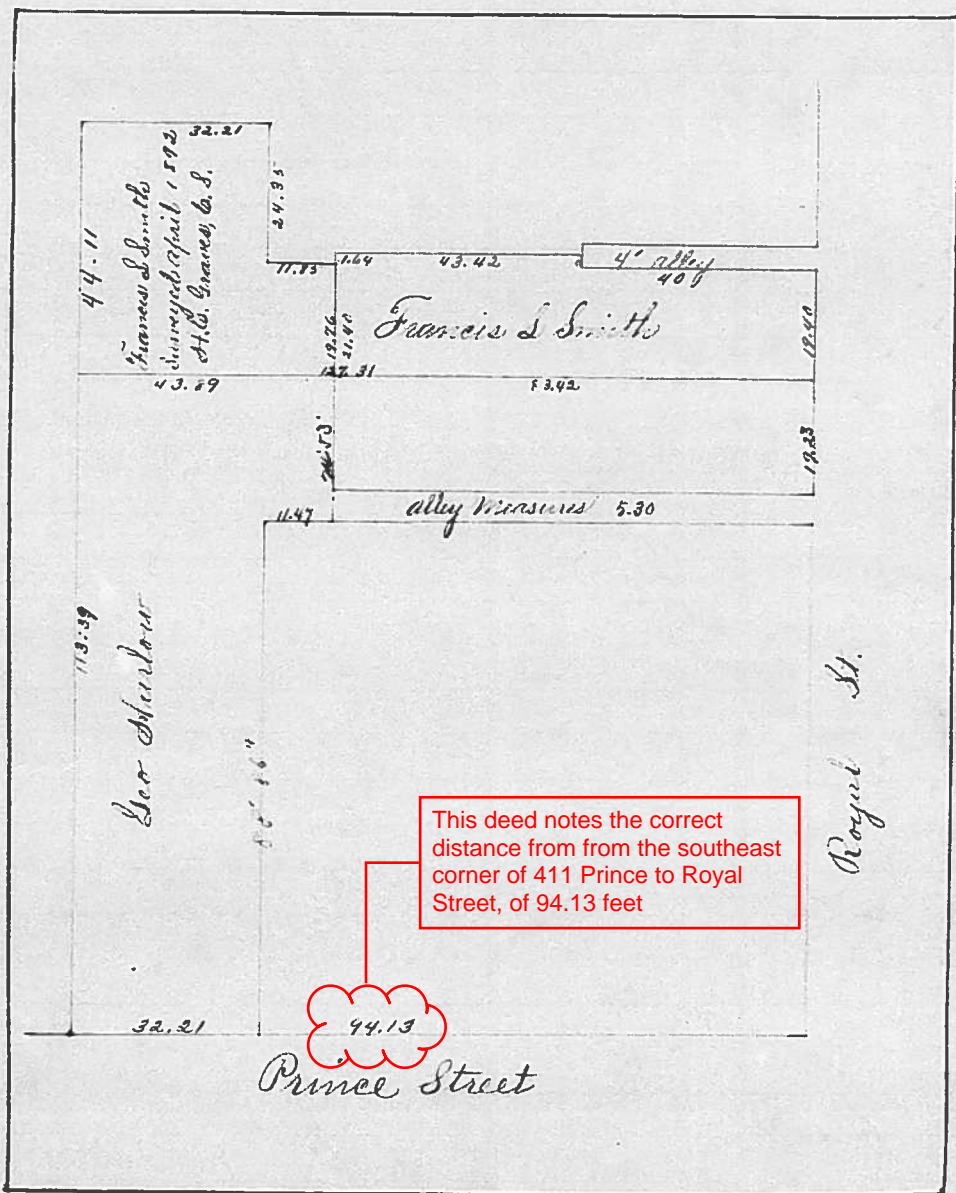 32.21
Francis L Smith
Surveyed april 1892
H.C. Graves, C.S.
44.11
24.35
11.85
1.64
43.42
4' alley
40
Francis L Smith
19.26
21.40
19.40
43.89
127.31
83.42
19.23
11.47
alley Measures 5.30
113.39
Geo Harlow
86' 36"
Royal St.
This deed notes the correct
distance from from the southeast
corner of 411 Prince to Royal
Street, of 94.13 feet
32.21
94.13
Prince Street